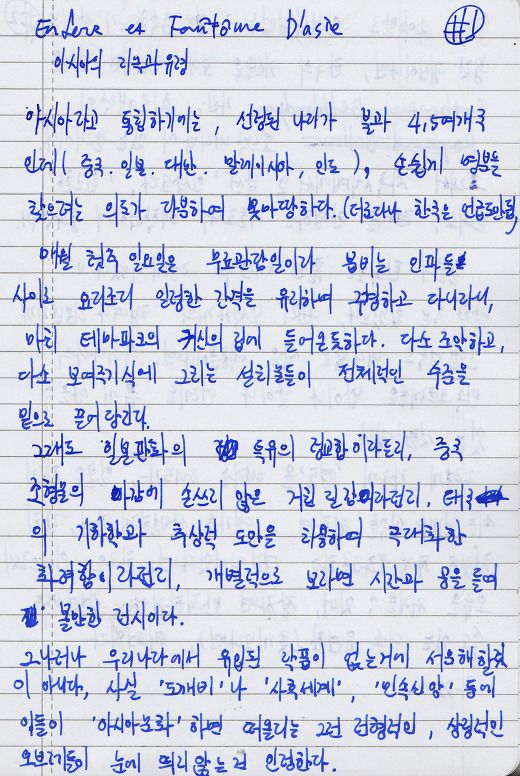 Enfers et Fantôme D'asie #1
아시아의 지옥과 유령
아시아라고 통칭하기에는, 선정된 나라가 불과 4,5여개국
인데( 중국. 일본. 대만. 말레이시아, 인도 ), 손쉽게 명분을
찾으려는 의도가 다분하여 못마땅하다. (더군다나 한국은 언급도 안됨)
매월 첫주 일요일은 무료관람일이라 붐비는 인파들
사이로 요리조리 일정한 간격을 유지하며 구경하고 다니자니,
마치 테마파크의 귀신의 집에 들어온듯하다. 다소 조악하고,
다소 보여주기식에 그치는 설치물들이 전체적인 수준을
밑으로 끌어당긴다.
그래도 일본판화의 특유의 정교함이라든지, 중국
조형물의 마감에 손쓰지 않은 거친 질감이라던지, 태국
의 기하학과 추상적 도안을 차용하여 극대화한
화려함이라던지, 개별적으로 보자면 시간과 공을 들여
볼만한 전시이다.
그나저나 우리나라에서 유입된 작품이 없는거에 서운해 할것
이 아니다, 사실 '도깨비'나 '사후세계', '민속신앙' 등에
있듯이 '아시아문화' 하면 떠올리는 그런 전형적인, 상징적인
오브제들이 눈에 띄지 않는건 인정한다.